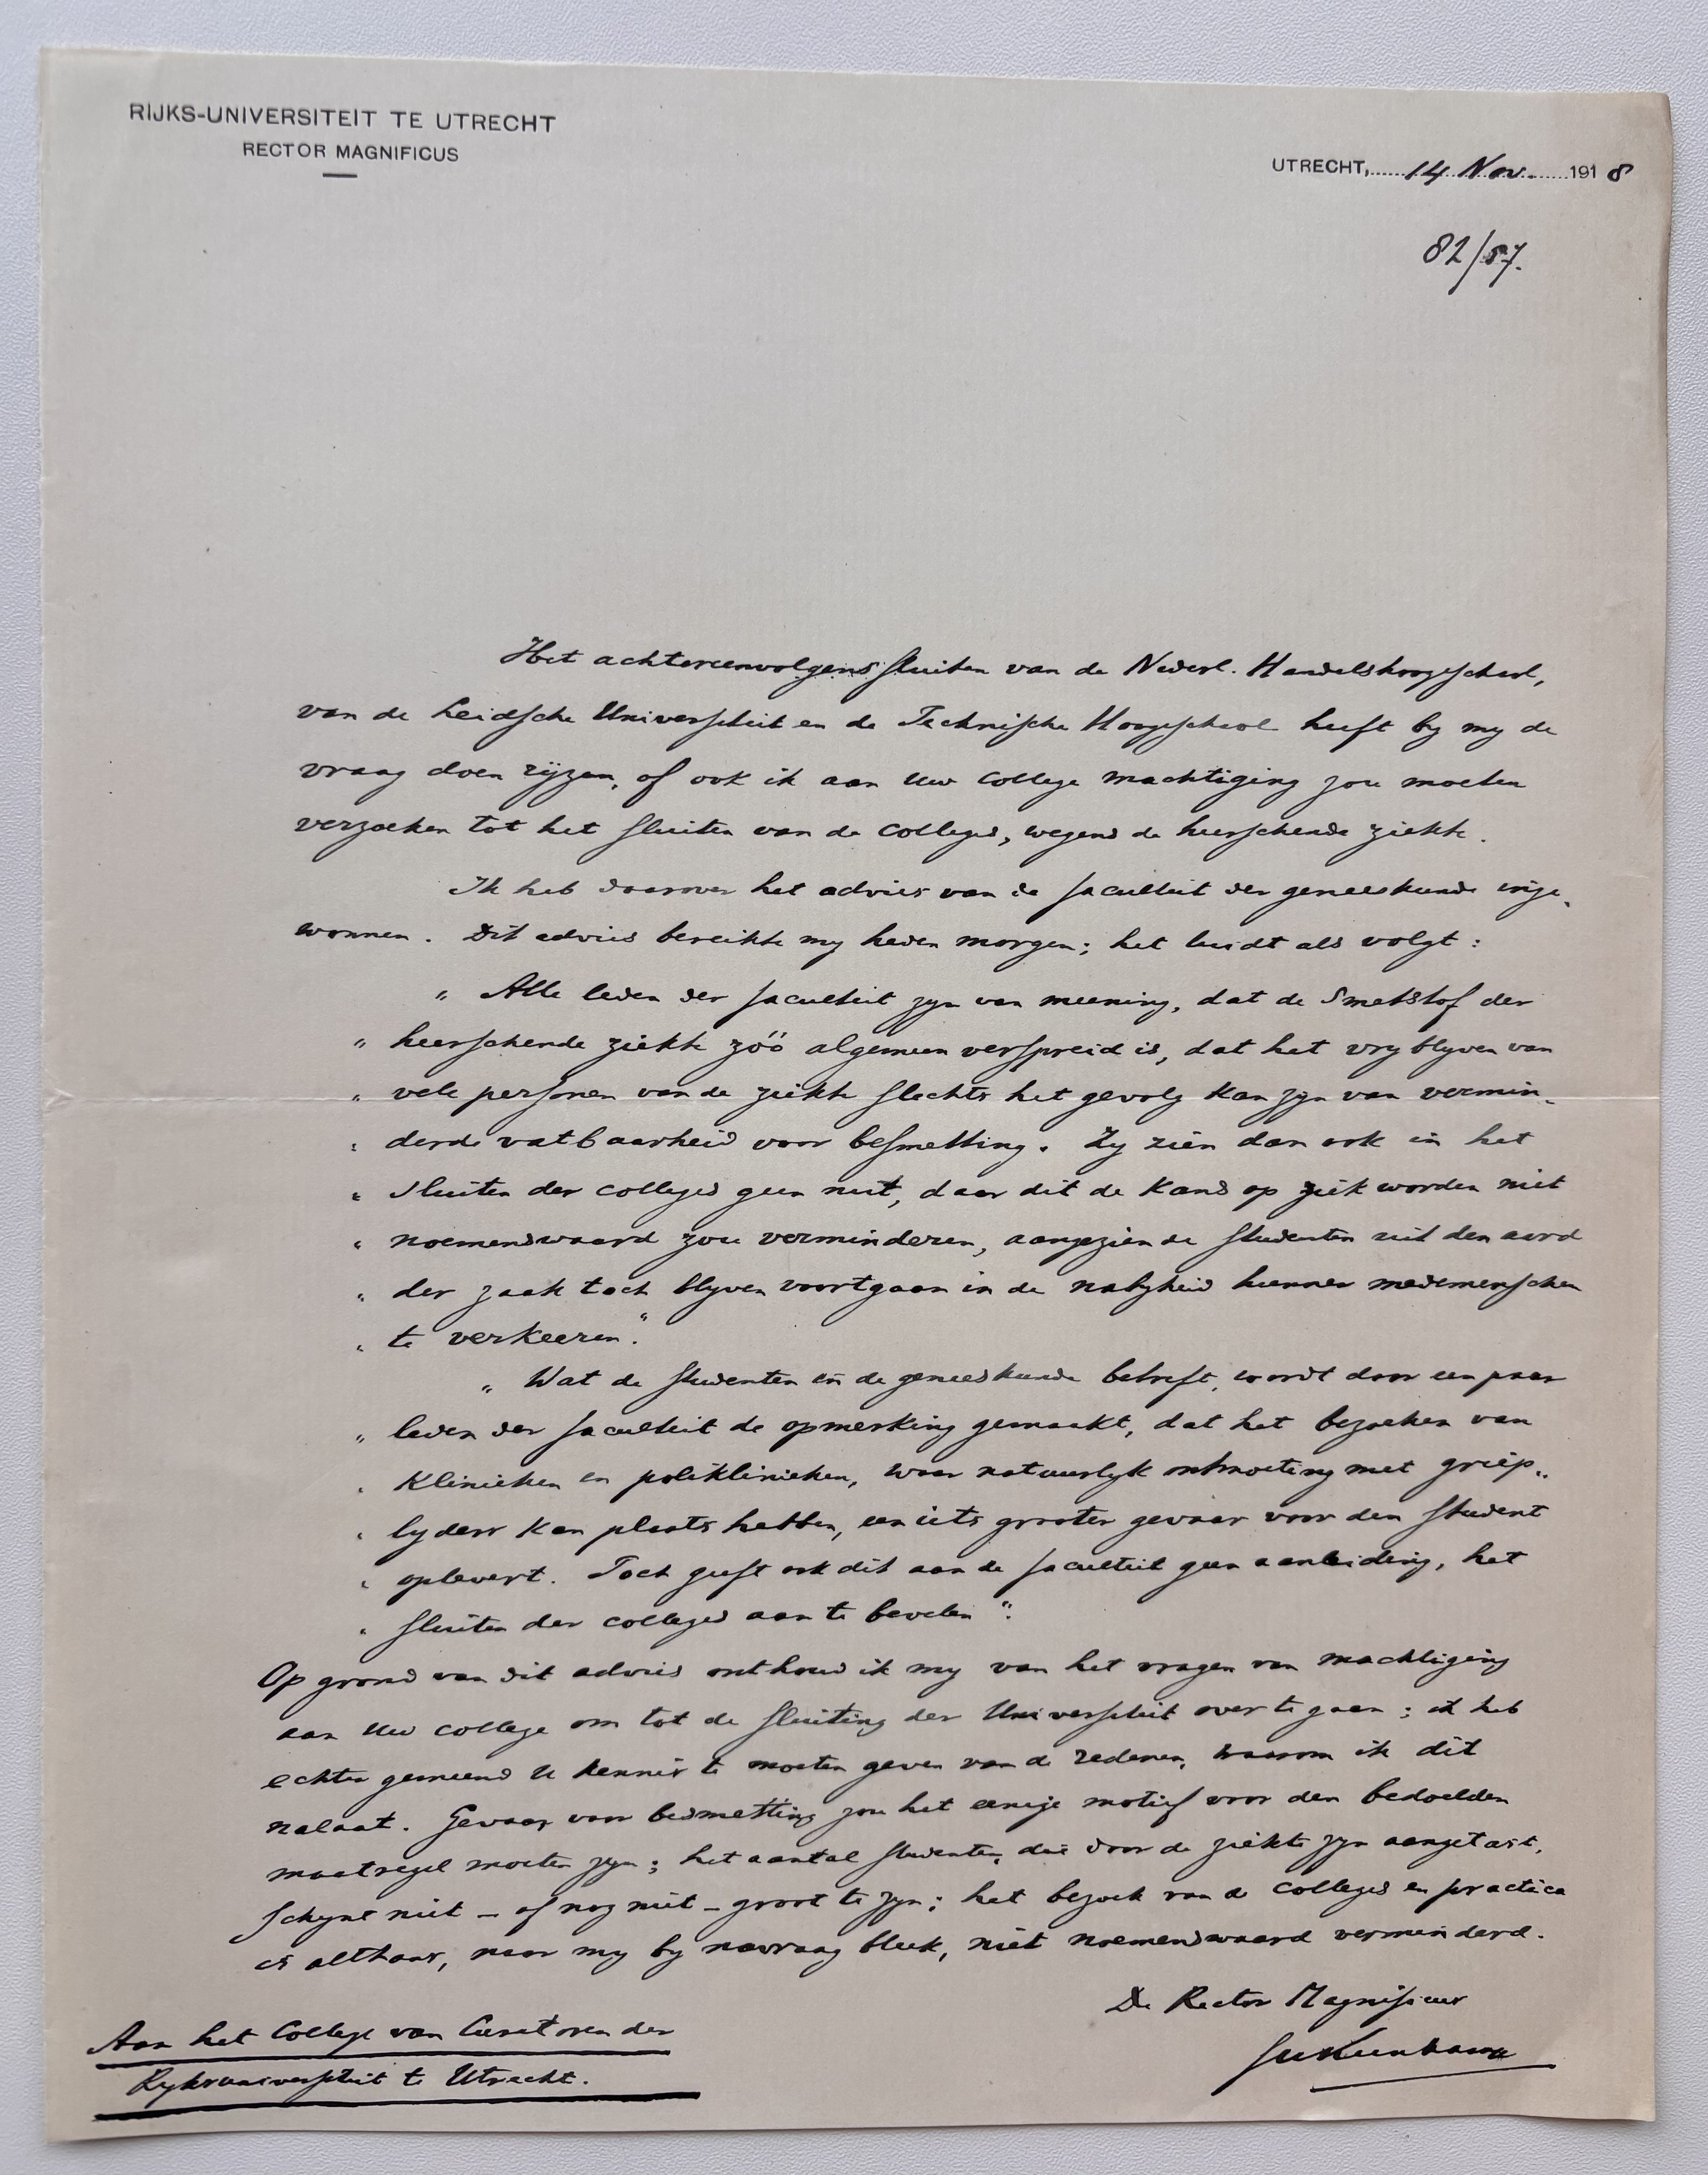 RIJKS-UNIVERSITEIT TE UTRECHT
RECTOR MAGNIFICUS
UTRECHT, 14 Nov. 1918
82/87.
Het achtereenvolgens sluiten van de Nederl. Handelshoogeschool,
van de Leidsche Universiteit en de Technische Hoogeschool heeft by my de
vraag doen rijzen, of ook ik aan Uw College machtiging zou moeten
verzoeken tot het sluiten van de colleges, wegens de heerschende ziekte.
Ik heb daarover het advies van de faculteit der geneeskunde inge-
wonnen. Dit advies bereikte my heden morgen; het luidt als volgt:
„ Alle leden der faculteit zyn van meening, dat de Smetstof der
„ heerschende ziekte zóó algemeen verspreid is, dat het vry blyven van
„ vele personen van de ziekte slechts het gevolg kan zyn van vermin-
„ derde vatbaarheid voor besmetting. Zy zien dan ook in het
„ sluiten der colleges geen nut, daar dit de kans op ziek worden niet
„ noemenswaard zou verminderen, aangezien de studenten uit den aard
„ der zaak toch blyven voortgaan in de nabyheid hunner medemenschen
„ te verkeeren".
„ Wat de studenten in de geneeskunde betreft, wordt door een paar
„ leden der faculteit de opmerking gemaakt, dat het bezoeken van
„ klinieken en poliklinieken, waar natuurlyk ontmoeting met griep-
„ lyders kan plaats hebben, een iets grooter gevaar voor den student
„ oplevert. Toch geeft ook dit aan de faculteit geen aanleiding, het
„ sluiten der colleges aan te bevelen".
Op grond van dit advies onthoud ik my van het vragen van machtiging
aan Uw college om tot de sluiting der Universiteit over te gaan; ik heb
echter gemeend U kennis te moeten geven van de redenen, waarom ik dit
nalaat. Gevaar voor besmetting zou het eenige motief voor den bedoelden
maatregel moeten zyn; het aantal studenten, die door de ziekte zyn aangetast,
schynt niet – of nog niet – groot te zyn; het bezoek van de colleges en practica
is althans, naar my by navraag bleek, niet noemenswaard verminderd.
De Rector Magnificus
Aan het College van Curatoren der
Ryksuniversiteit te Utrecht.